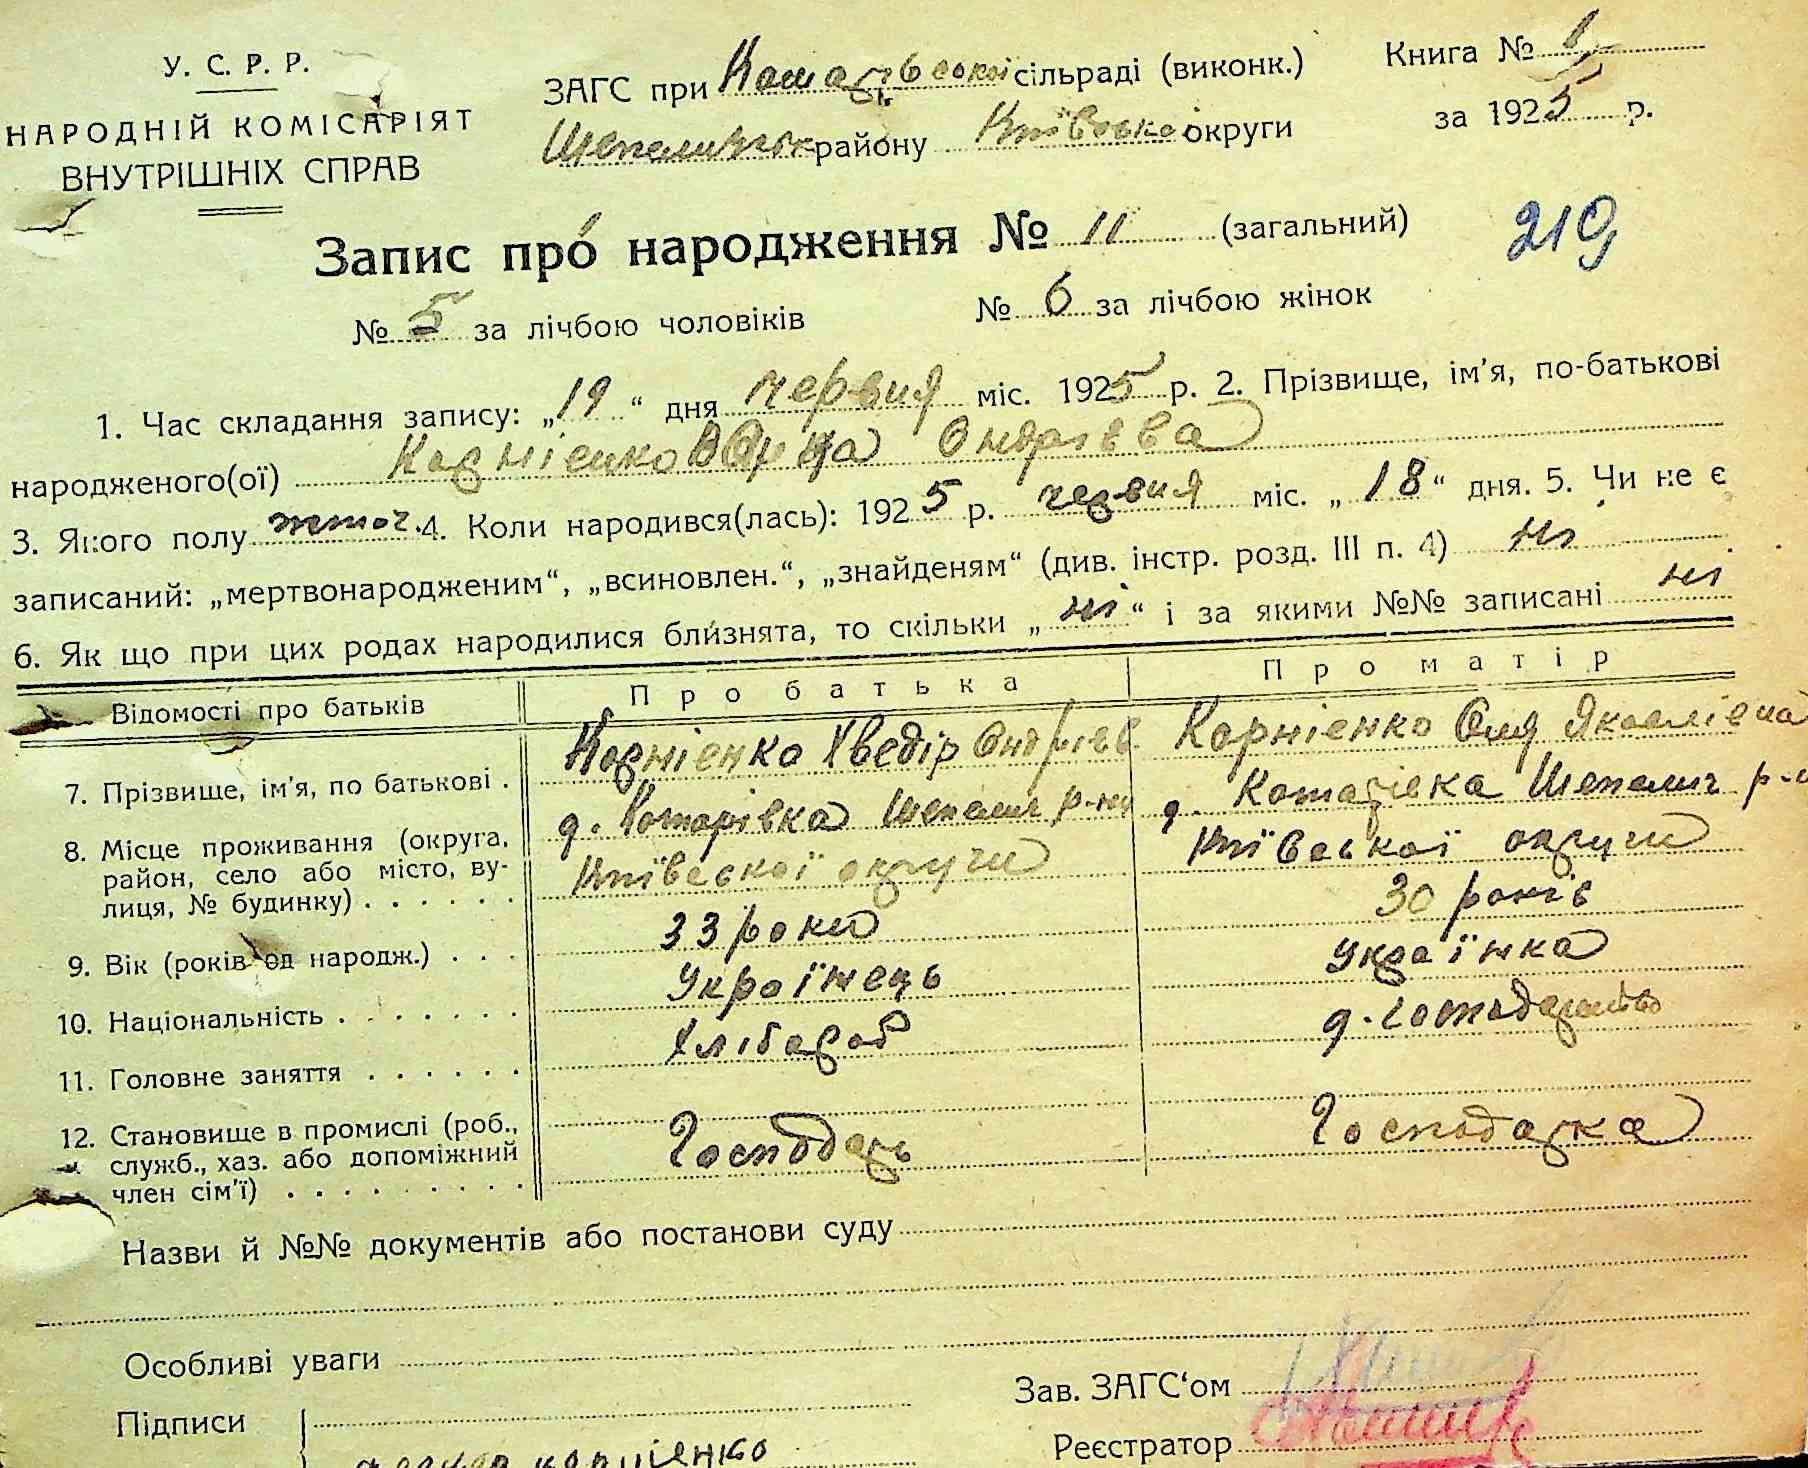 У. С. Р. Р.
НАРОДНІЙ КОМІСАРІЯТ
ВНУТРІШНІХ СПРАВ
ЗАГС при сільраді (виконк.)
Шепелич району Київської округи
Книга № 1
за 1925 р.
Запис про народження № 11 (загальний)
219
№ 5 за лічбою чоловіків № 6 за лічбою жінок
1. Час складання запису: „19“ дня червня міс. 1925 р. 2. Прізвище, ім'я, по-батькові
народженого(ої) Корнієнко
3. Якого полу жіноч. 4. Коли народився(лась): 1925 р. червня міс. „18“ дня. 5. Чи не є
записаний: „мертвонародженим“, „всиновлен.“, „знайденям“ (див. інстр. розд. III п. 4) ні
6. Як що при цих родах народилися близнята, то скільки „ні“ і за якими №№ записані ні
Відомості про батьків Про батька Про матір
7. Прізвище, ім'я, по батькові . Корнієнко Хведір Корнієнко Оля Яковлівна
8. Місце проживання (округа, район, село або місто, вулиця, № будинку) . . . . . . д. Котарівка Шепелич р-ну д. Котарівка Шепелич р-н
Київської округи Київської округи
9. Вік (років од народж.) . . . 33 роки 30 років
10. Національність . . . . . . . Українець Українка
11. Головне заняття . . . . . . Хлібороб д. господарство
12. Становище в промислі (роб., служб., хаз. або допоміжний член сім'ї) . . . . . . . . . Господарь Господарка
Назви й №№ документів або постанови суду
Особливі уваги
Зав. ЗАГС'ом
Підписи
Реєстратор
корніенко